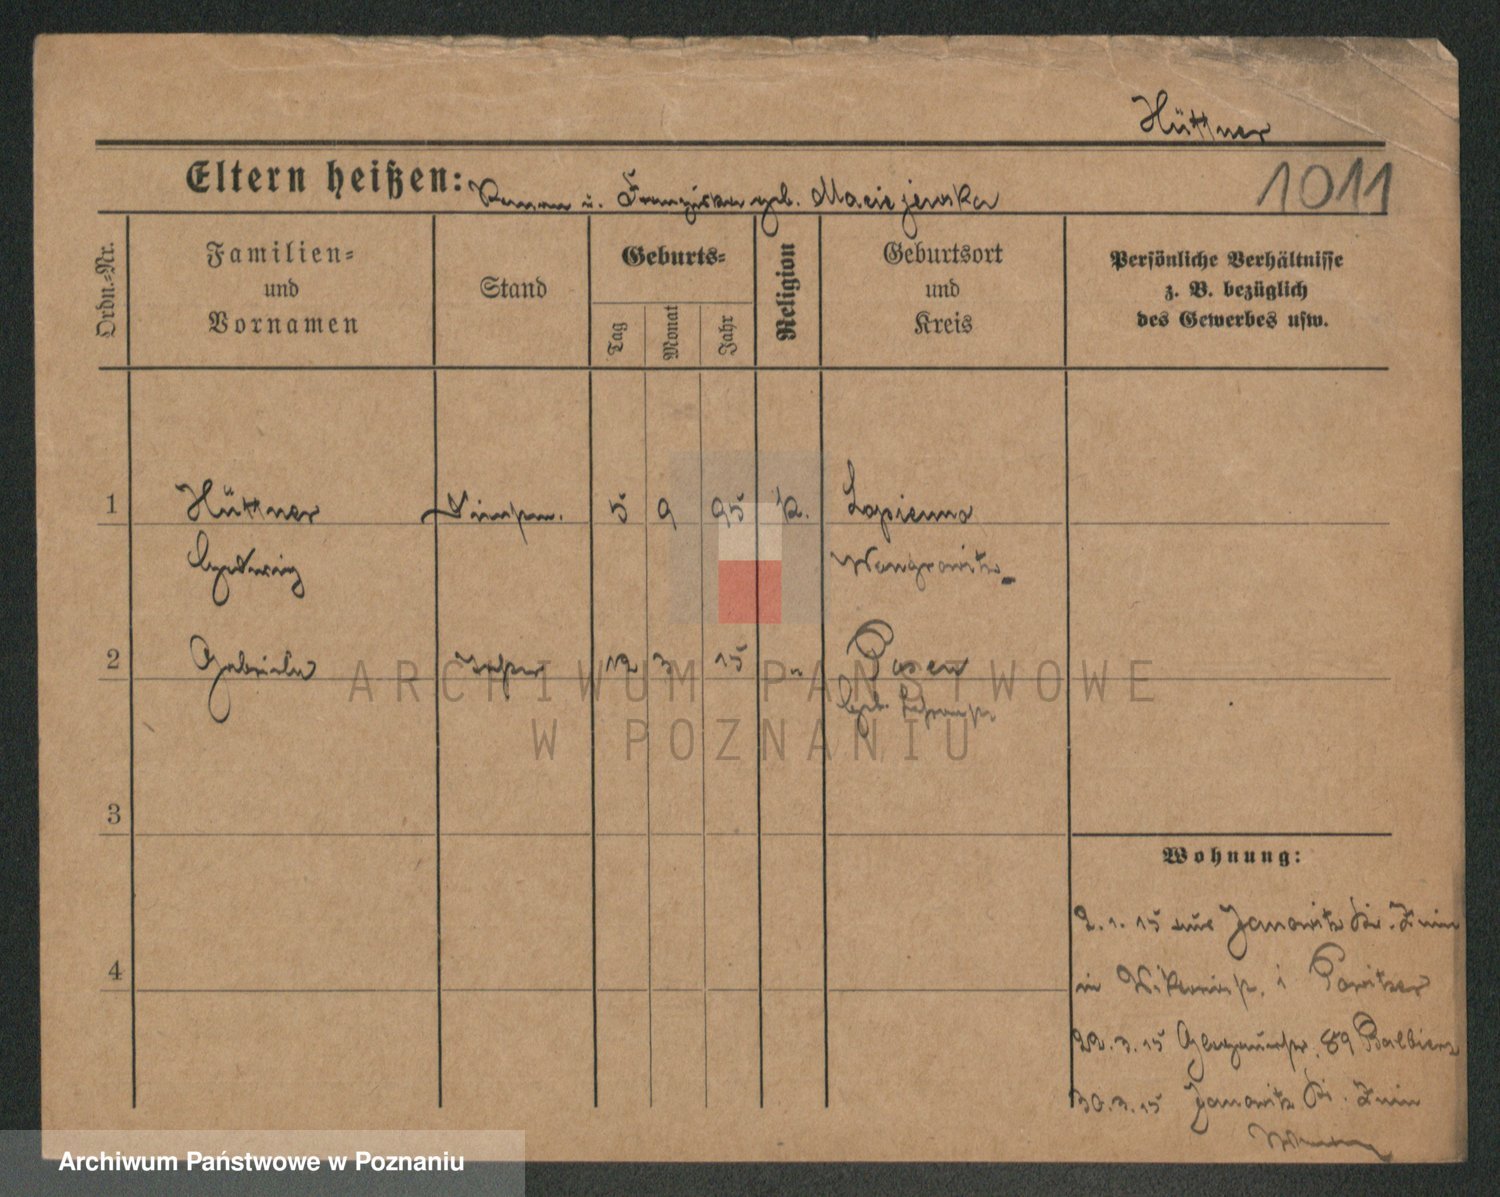 Hüttner
1011
Eltern heißen: Roman u. Franziska geb. Maciejewska
Ordn.-Nr.
Familien-
und
Vornamen
Stand
Geburts-
Tag
Monat
Jahr
Religion
Geburtsort
und
Kreis
Persönliche Verhältnisse
z. B. bezüglich
des Gewerbes usw.
1 Hüttner 5 9 95 k. Lopienno
Hedwig Wongrowitz
2 Gabriele Tochter 12 3 15 " Posen
Geb.
3
4
Wohnung:
2.1.15 aus Janowitz Kr. Znin
in i Pawitzer
22.3.15 Glogauerstr. 89 Balbierz
30.3.15 Janowitz Kr. Znin
ARCHIWUM PAŃSTWOWE
W POZNANIU
Archiwum Państwowe w Poznaniu